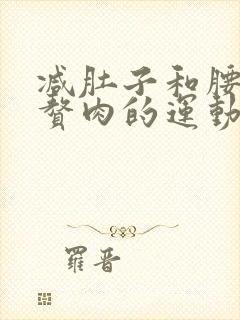 减肚子和腰
赘肉的運動
羅晋